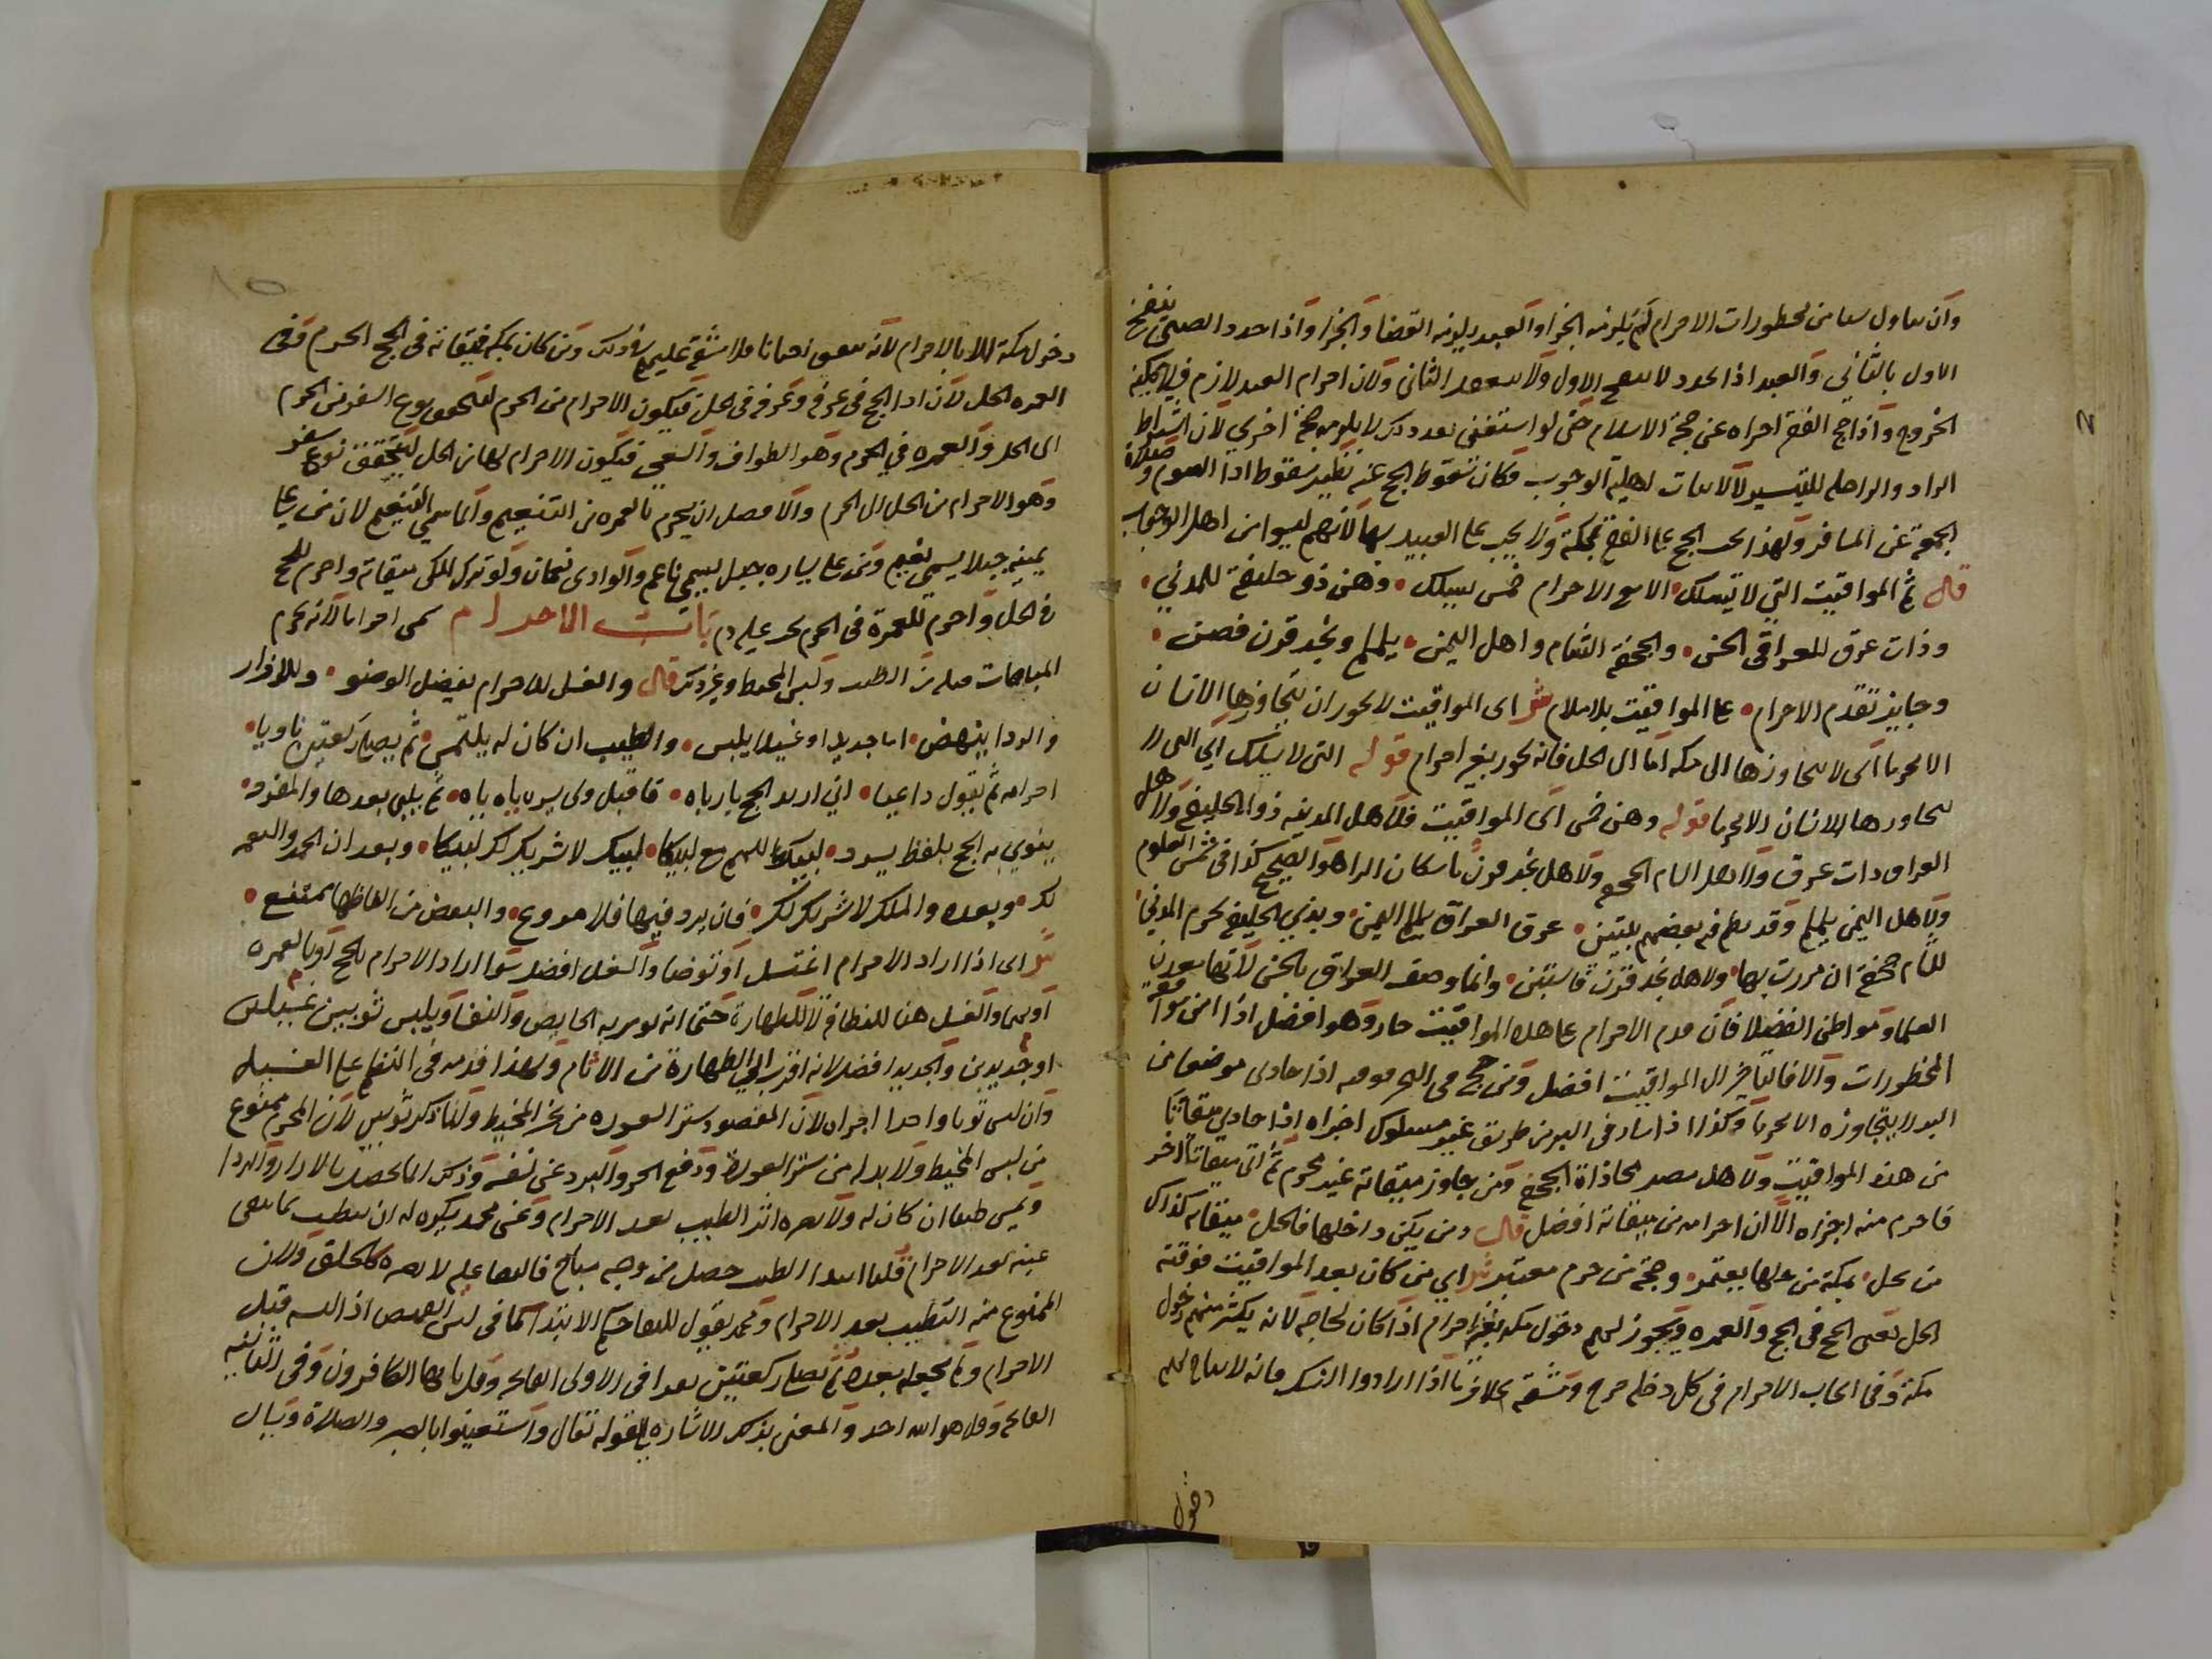 وان تناول شيئا من محظورات الاحرام لم يلزمه الجزا والعبد يلزمه القضا والجزا واذا جدد الصبي ينفسخ
الاول بالثاني والعبد اذا جدد لا ينفسخ الاول ولا ينعقد الثاني ولان احرام العبد لازم فلا يمكنه
الخروج واذا حج الفقير اجزاه عن حجة الاسلام حتى لو استغنى بعد ذلك لا يلزمه حجة اخرى لان اشتراط
الزاد والراحلة للتيسير لا لاثبات اهلية الوجوب فكان سقوط الحج عنه نظير سقوط ادا الصوم وصلاة
الجمعة عن المسافر ولهذا يجب الحج على الفقير بمكة ولا يجب على العبيد بها لانهم ليسوا من اهل الوجوب
قال ثم المواقيت التي لا تسلك الا مع الاحرام خمس لسلك وهن ذو حليفة للمدني
وذات عرق للعراقي الحسن والجحفة الشام واهل اليمن يلملم ونجد قرن فصن
وجايز تقدم الاحرام على المواقيت بلا ملام ش اى المواقيت لا يجوز ان يتجاوزها الانسان
الا محرما اى لا يتجاوزها الى مكة اما الى الحل فانه يجوز بغير احرام قوله التى لا تسلك اي التى لا
يتجاوزها الانسان الا محرما قوله وهن خمس اى المواقيت فلاهل المدينه ذو الحليفة ولاهل
العراق ذات عرق ولاهل الشام الجحفه ولاهل نجد قرن باسكان الرا هو الصحيح كذا في شمس العلوم
ولاهل اليمن يلملم وقد نظم فيه بعضهم بيتين عرق العراق يلملم اليمن وبذي الحليفة يحرم المدني
للشام جحفة ان مررت بها ولاهل نجد قرن فاستبن وانما وصف العراق بالحسن لانها معدن
العلما ومواطن الفضلا فان قدم الاحرام على هذه المواقيت جاز وهو افضل اذا امن مواقعة
المحظورات والا فالتاخير الى المواقيت افضل ومن حج في البحر فوقته اذا حاذى موضعا من
البر لا يتجاوزه الا محرما وكذا اذا سار في البر من طريق غير مسلوك اجزاه اذا حاذى ميقاتا
من هذه المواقيت ولاهل مصر محاذاة الجحفة ومن جاوز ميقاته غير محرم ثم اتى ميقاتا آخر
فاحرم منه اجزاه الا ان احرامه من ميقاته افضل قال ومن يكن داخلها فالحل ميقاته كذاك
من حل بمكة من حلها يعتمر وحجه من حرم معتبر ش اي من كان بعد المواقيت فوقته
الحل يعنى الحج في الحج والعمره ويجوز لهم دخول مكه بغير احرام اذا كان لحاجة لانه يكثر منهم دخول
مكة وفي ايجاب الاحرام في كل دخلة حرج ومشقة بخلاف ما اذا ارادوا النسك فانه لا يباح لهم
دخول
دخول مكة الا بالاحرام لانه يتفق احيانا فلا مشقة عليهم في ذلك ومن كان بمكة فميقاته في الحج الحرم وفي
العمره الحل لان ادا الحج في عرفة وعرفة في الحل فيكون الاحرام من الحرم ليتحقق نوع السفر من الحرم
الى الحل والعمره في الحرم وهو الطواف والسعي فيكون الاحرام لها من الحل ليتحقق نوع سفر
وهو الاحرام من الحل الى الحرم والافضل ان يحرم بالعمره من التنعيم وانما سمي التنعيم لان من على
يمينه جبلا يسمى نعيم ومن على يساره جبل يسمى ناعم والوادى نعمان ولو ترك المكى ميقاته واحرم للحج
في الحل واحرم للعمرة في الحرم يجب عليه دم باب الاحرام سمى احراما لانه يحرم
المباحات قبله من الطيب ولبس المخيط وغير ذلك قال والغسل للاحرام يفضل الوضو وللازار
والردا ينهض اما جديدا او غسيلا يلبس والطيب ان كان له يلتمس ثم يصلى ركعتين ناويا
احرامه ثم يقول داعيا اني اريد الحج يا رباه فاقبل ولى يسر يا ياه ثم يلبي بعدها والمفرد
ينوي به الحج بلفظ يسرد لبيك اللهم مع لبيكا لبيك لا شريك لك لبيكا وبعد ان الحمد والنعمه
لك وبعده والملك لا شريك لك فان يزد فيها فلا ممنوع والبعض من الفاظها ممتنع
ش اى اذا اراد الاحرام اغتسل او توضا والغسل افضل سوا اراد الاحرام بالحج او بالعمره
او بهما والغسل هنا للنظافة لا للطهارة حتى انه يومر به الحايض والنفسا ويلبس ثوبين غسيلين
او جديدين والجديد افضل لانه اقرب الي الطهارة من الاثام ولهذا قدمه في النظم على الغسيل
وان لبس ثوبا واحدا اجزاه لان المقصود ستر العوره من غير المخيط وانما ذكر ثوبين لان المحرم ممنوع
من لبس المخيط ولا بد له من ستر العورة ودفع الحر والبرد عن نفسه وذلك انما يحصل بالازار والردا
ويمس طيبا ان كان له ولا يضره اثر الطيب بعد الاحرام وعن محمد يكره له ان يتطيب بما يبقى
عينه بعد الاحرام قلنا ابتدا الطيب حصل من وجه مباح فالبقا عليه لا يضره كالحلق ولان
الممنوع منه التطيب بعد الاحرام ومحمد يقول للبقا حكم الابتدا كما في لبس القميص اذا لبسه قبل
الاحرام ولم يخلعه بعده ثم يصلى ركعتين يقرا في الاولى الفاتحه وقل يا ايها الكافرون وفي الثانيه
الفاتحه وقل هو الله احد والمعنى بذلك الاشاره الي قوله تعالى واستعينوا بالصبر والصلاة ويسال